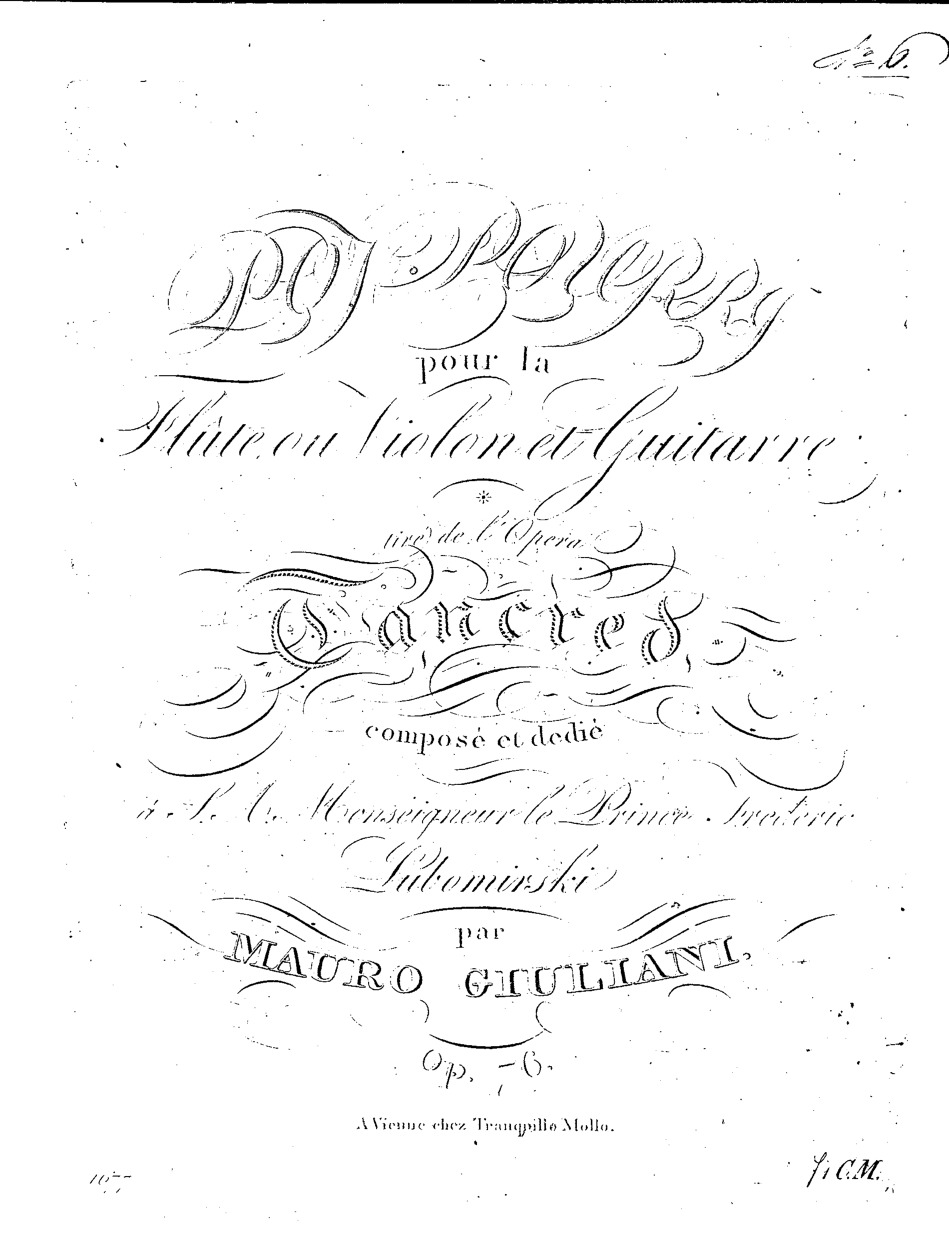 № 6.
POT-POURRI
pour la
Flûte ou Violon et Guitarre
tiré de l'Opera
Tancred,
composé et dedié
à S. A. Monseigneur le Prince Frederic
Lubomirski
par
MAURO GIULIANI.
Op. 76.
A Vienne chez Tranquillo Mollo.
f 1 C.M.